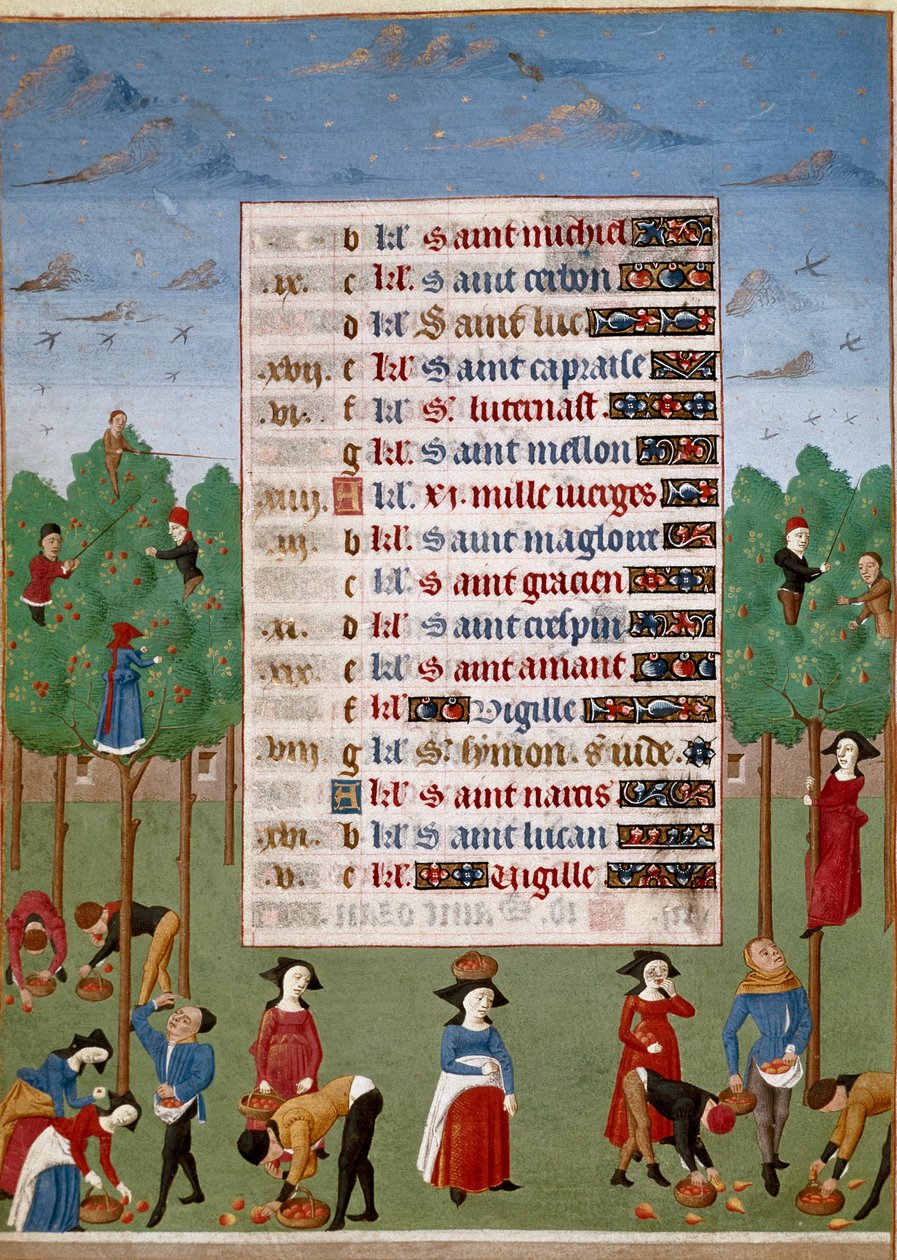 b kl Saint michiel
.ix. c kl. Saint cerbon
d kl Saint luc.
.xvii. e kl Saint capraise
.vi. f kl S. luternast.
g kl. Saint mellon
.xiiii. A kl. xi. mille vierges
.iii. b kl. Saint magloire
c kl. Saint gracien
.xi. d kl Saint crespin
.xix. e kl Saint amant
f kl. Vigille
.viii. g kl S. symon. s. iude.
A kl Saint narcis
.xvi. b kl Saint lucan
.v. c kl. Vigille